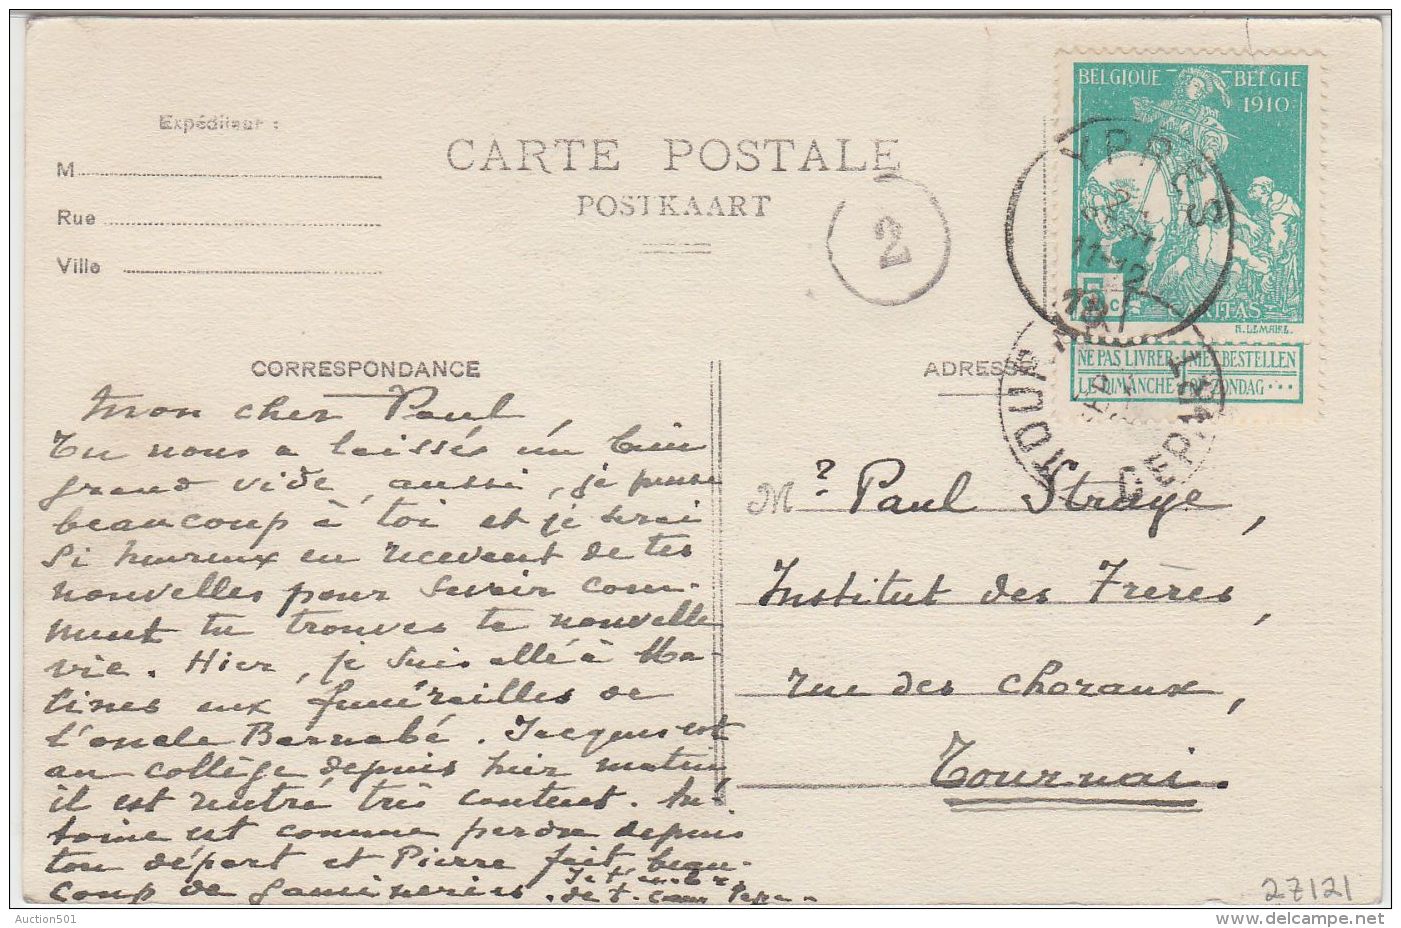 BELGIQUE BELGIE
1910
Expéditeur :
M
Rue
Ville
CARTE POSTALE
POSTKAART
2
YPRES
11-12
5 c
CARITAS
H. LEMAIRE.
NE PAS LIVRER NIET BESTELLEN
LE DIMANCHE ZONDAG
CORRESPONDANCE
ADRESSE
TOURNAI
DEPART
Mon cher Paul,
Tu nous a laissés un bien
grand vide, aussi, je pense
beaucoup à toi et je serai
si heureux en recevant de tes
nouvelles pour savoir com-
ment tu trouves ta nouvelle
vie. Hier, je suis allé à Ma-
tines aux funérailles de
l'oncle Barnabé. Jacques est
au collège depuis hier matin
il est rentré très content. An-
toine est comme perdu depuis
ton départ et Pierre fait beau-
coup de gamineries. Je t'
de t. cœur Papa.
Mr Paul Straye,
Institut des Frères,
rue des Choraux,
Tournai.
27121
Auction501
www.delcampe.net